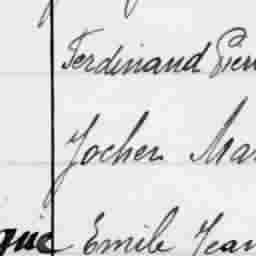 Ferdinand Pierr
Jocher Mar
que Emile Jean